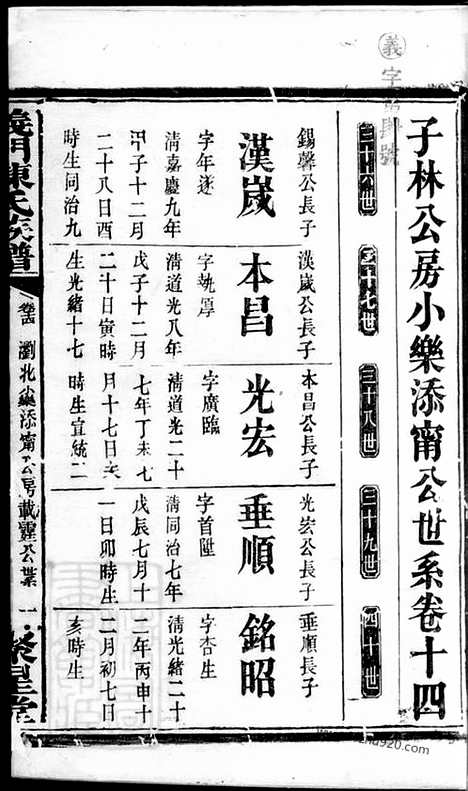 義字第 號
子林公房小樂添甯公世系卷十四
三十六世
三十七世
三十八世
三十九世
四十世
錫馨公長子
漢嵗
字年遂
清嘉慶九年
甲子十二月
二十八日酉
時生同治九
漢嵗公長子
本昌
字執厚
清道光八年
戊子十二月
二十日寅時
生光緒十七
本昌公長子
光宏
字廣臨
清道光二十
七年丁未七
月十七日亥
時生宣統二
光宏公長子
垂順
字首陞
清同治七年
戊辰七月十
一日卯時生
垂順長子
銘昭
字杏生
清光緒二十
二年丙申十
二月初七日
亥時生
義門陳氏族譜
卷十四
瀏北小樂添甯公房載霆公業
一
聚星堂